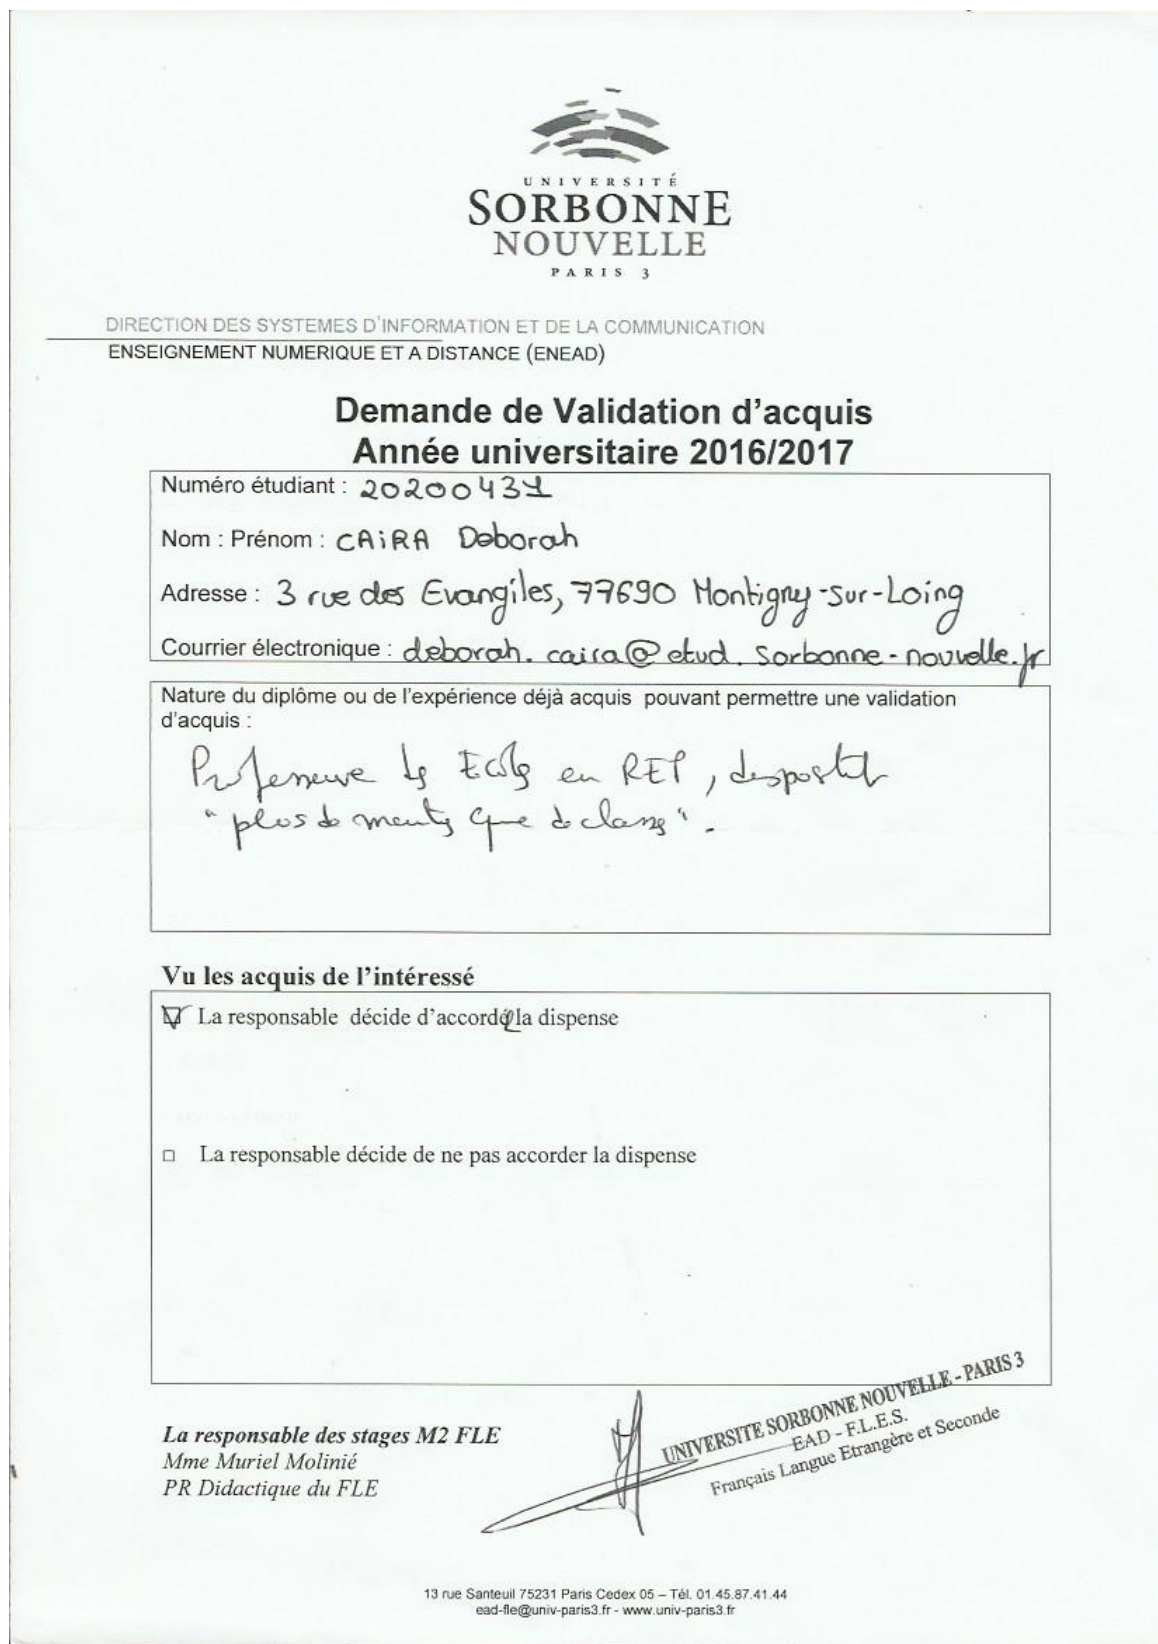 UNIVERSITÉ
SORBONNE
NOUVELLE
PARIS 3
DIRECTION DES SYSTEMES D'INFORMATION ET DE LA COMMUNICATION
ENSEIGNEMENT NUMERIQUE ET A DISTANCE (ENEAD)
Demande de Validation d'acquis
Année universitaire 2016/2017
Numéro étudiant : 20200431
Nom : Prénom : CAiRA Deborah
Adresse : 3 rue des Evangiles, 77690 Montigny-sur-Loing
Courrier électronique : deborah.caira@etud.sorbonne-nouvelle.fr
Nature du diplôme ou de l'expérience déjà acquis pouvant permettre une validation
d'acquis :
en REP,
"plus de que de
Vu les acquis de l'intéressé
La responsable décide d'accorder la dispense
La responsable décide de ne pas accorder la dispense
La responsable des stages M2 FLE
Mme Muriel Molinié
PR Didactique du FLE
UNIVERSITE SORBONNE NOUVELLE - PARIS 3
EAD - F.L.E.S.
Français Langue Etrangère et Seconde
13 rue Santeuil 75231 Paris Cedex 05 – Tél. 01.45.87.41.44
ead-fle@univ-paris3.fr - www.univ-paris3.fr